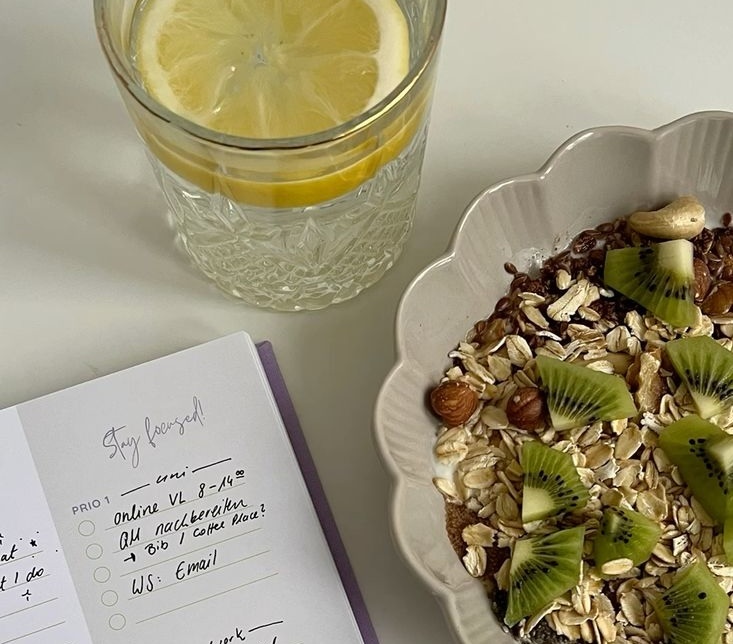 at
t I do
Stay focused!
— uni —
PRIO 1
online VL 8-14⁰⁰
QM nachbereiten
→ Bib / Coffee Place?
WS: Email
work —